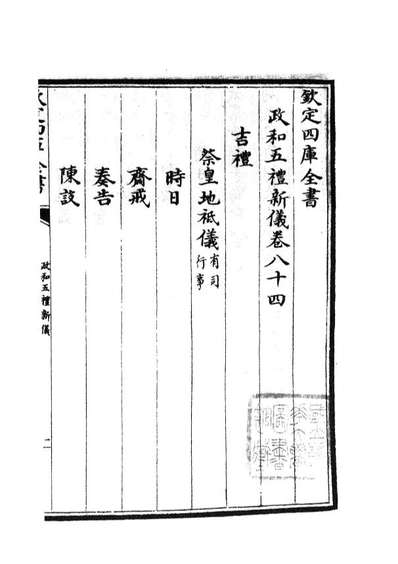 欽定四庫全書
政和五禮新儀卷八十四
吉禮
祭皇地祇儀有司行事
時日
齋戒
奏告
陳設
政和五禮新儀